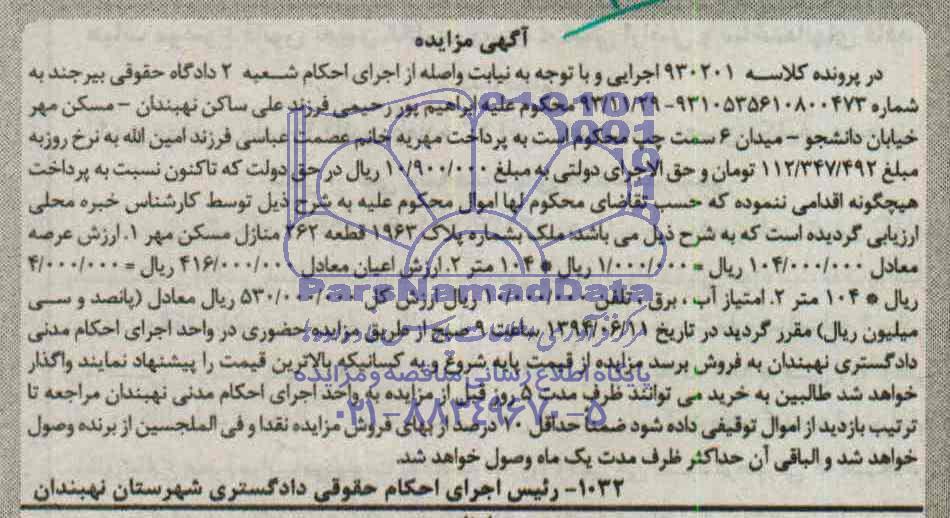 آگهی مزایده
در پرونده کلاسه ۹۳۰۲۰۱ اجرایی و با توجه به نیابت واصله از اجرای احکام شعبه ۲ دادگاه حقوقی بیرجند به
شماره ۹۳۱۰۵۳۵۶۱۰۸۰۰۴۷۳-۹۳/۱۱/۲۹ محکوم علیه ابراهیم پور رحیمی فرزند علی ساکن نهبندان – مسکن مهر
خیابان دانشجو – میدان ۶ سمت چپ محکوم است به پرداخت مهریه خانم عصمت عباسی فرزند امین الله به نرخ روزبه
مبلغ ۱۱۲/۳۴۷/۴۹۲ تومان و حق الاجرای دولتی به مبلغ ۱۰/۹۰۰/۰۰۰ ریال در حق دولت که تاکنون نسبت به پرداخت
هیچگونه اقدامی ننموده که حسب تقاضای محکوم لها اموال محکوم علیه به شرح ذیل توسط کارشناس خبره محلی
ارزیابی گردیده است که به شرح ذیل می باشد: ملک بشماره پلاک ۱۹۶۳ قطعه ۲۶۲ منازل مسکن مهر ۱. ارزش عرصه
معادل ۱۰۴/۰۰۰/۰۰۰ ریال = ۱/۰۰۰/۰۰۰ ریال * ۱۰۴ متر ۲. ارزش اعیان معادل ۴۱۶/۰۰۰/۰۰۰ ریال = ۴/۰۰۰/۰۰۰
ریال * ۱۰۴ متر ۲. امتیاز آب ، برق ، تلفن ۱۰/۰۰۰/۰۰۰ ریال ارزش کل ۵۳۰/۰۰۰/۰۰۰ ریال معادل (پانصد و سی
میلیون ریال) مقرر گردید در تاریخ ۱۳۹۴/۰۶/۱۱ ساعت ۹ صبح از طریق مزایده حضوری در واحد اجرای احکام مدنی
دادگستری نهبندان به فروش برسد مزایده از قیمت پایه شروع و به کسانیکه بالاترین قیمت را پیشنهاد نمایند واگذار
خواهد شد طالبین به خرید می توانند ظرف مدت ۵ روز قبل از مزایده به واحد اجرای احکام مدنی نهبندان مراجعه تا
ترتیب بازدید از اموال توقیفی داده شود ضمنا حداقل ۱۰ درصد از بهای فروش مزایده نقدا و فی الملجسین از برنده وصول
خواهد شد و الباقی آن حداکثر ظرف مدت یک ماه وصول خواهد شد.
۱۰۳۲- رئیس اجرای احکام حقوقی دادگستری شهرستان نهبندان
ParsNamadData
پایگاه اطلاع رسانی مناقصه و مزایده
۰۲۱-۸۸۳۴۹۶۷۰-۵